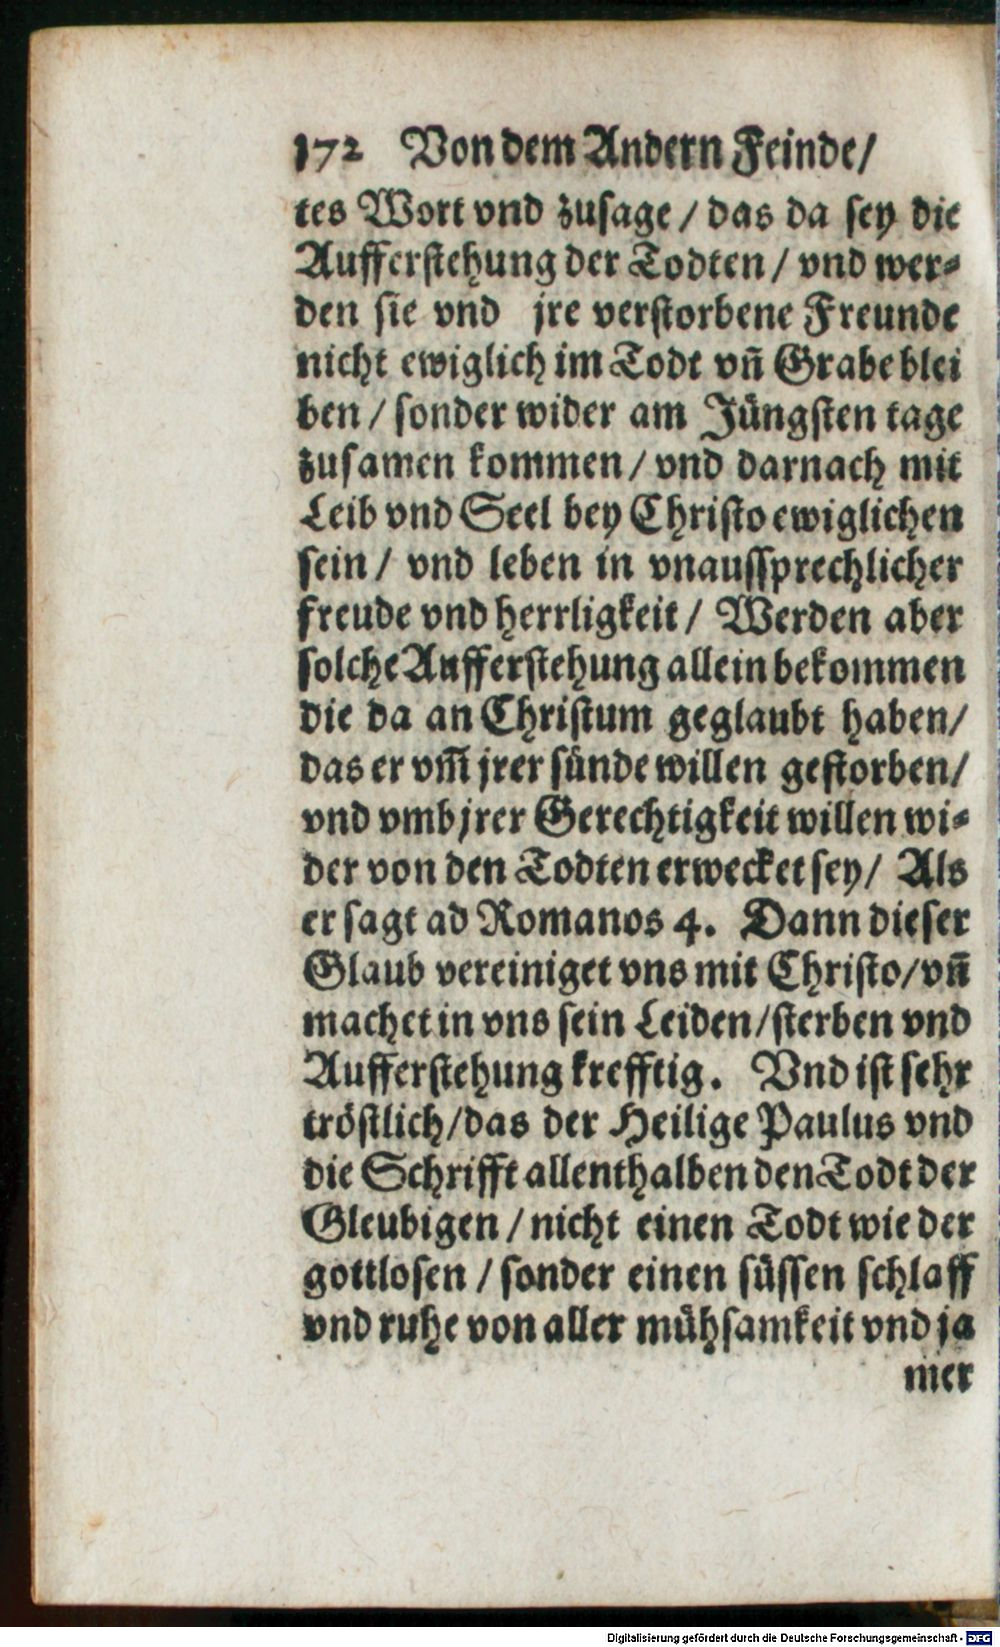 172 Von dem Andern Feinde/
tes Wort vnd zusage / das da sey die
Aufferstehung der Todten / vnd wer-
den sie vnd jre verstorbene Freunde
nicht ewiglich im Todt vñ Grabe blei
ben / sonder wider am Jüngsten tage
zusamen kommen / vnd darnach mit
Leib vnd Seel bey Christo ewiglichen
sein / vnd leben in vnaussprechlicher
freude vnd herrligkeit / Werden aber
solche Aufferstehung allein bekommen
die da an Christum geglaubt haben/
das er vm̃ jrer sünde willen gestorben/
vnd vmb jrer Gerechtigkeit willen wi-
der von den Todten erwecket sey / Als
er sagt ad Romanos 4. Dann dieser
Glaub vereiniget vns mit Christo/vñ
machet in vns sein Leiden/sterben vnd
Aufferstehung krefftig. Vnd ist sehr
tröstlich/das der Heilige Paulus vnd
die Schrifft allenthalben den Todt der
Gleubigen / nicht einen Todt wie der
gottlosen / sonder einen süssen schlaff
vnd ruhe von aller mühsamkeit vnd ja
mer
Digitalisierung gefördert durch die Deutsche Forschungsgemeinschaft - DFG